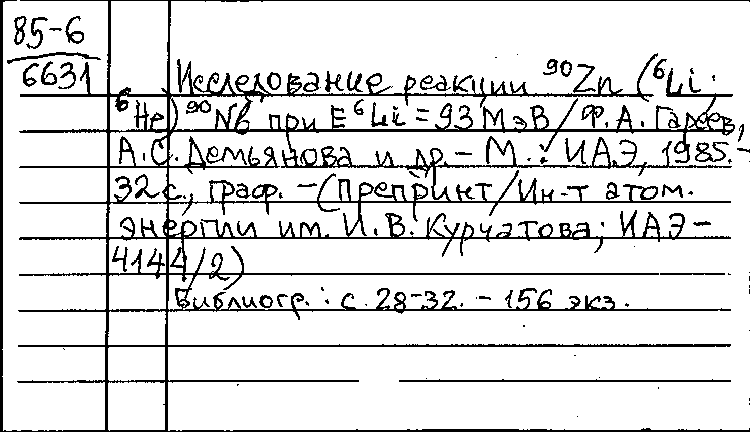 85-6
6631
Исследование реакции ⁹⁰Zn (⁶Li,
⁶He) ⁹⁰Nb при E ⁶Li = 93 МэВ / Ф.А. Гареев,
А.С. Демьянова и др. – М.: ИАЭ, 1985. –
32 с., граф. – (Препринт / Ин-т атом.
энергии им. И.В. Курчатова; ИАЭ –
4144/2)
Библиогр.: с. 28-32. – 156 экз.